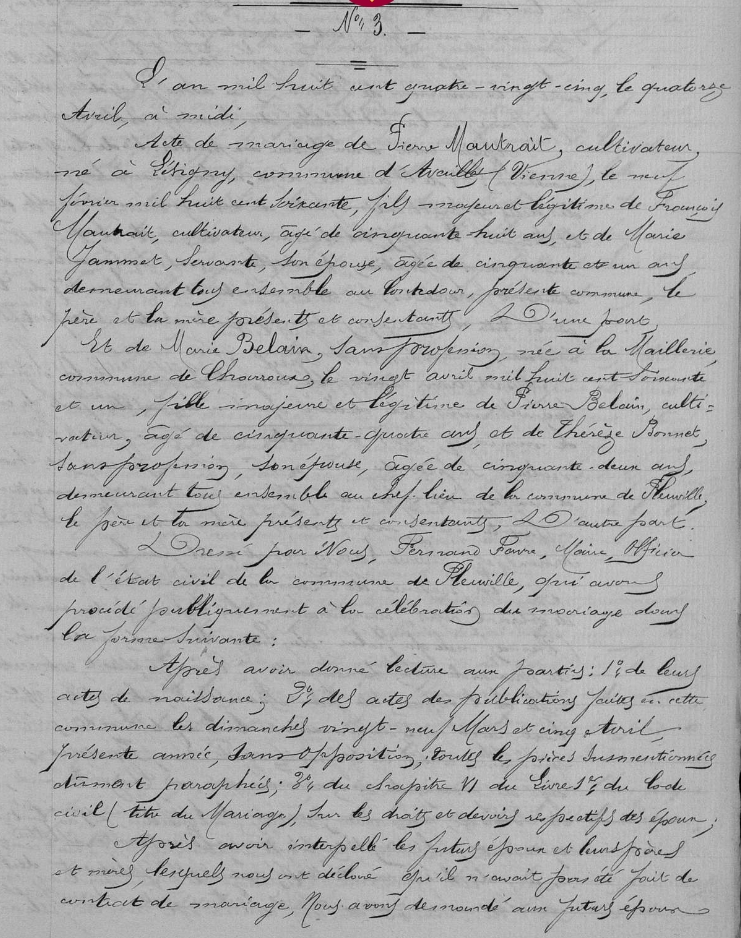 — N° 3. —
L'an mil huit cent quatre-vingt-cinq, le quatorze
Avril, à midi,
Acte de mariage de Pierre Mautrait, cultivateur,
né à Lésigny, commune d'Availles (Vienne), le neuf
février mil huit cent soixante, fils majeur et légitime de François
Mautrait, cultivateur, âgé de cinquante huit ans, et de Marie
Jammet, servante, son épouse, âgée de cinquante et un ans,
demeurant tous ensemble au présente commune, le
père et la mère présents et consentants, D'une part,
Et de Marie Belain, sans profession, née à la Maillerie,
commune de Charroux, le vingt avril mil huit cent soixante
et un, fille majeure et légitime de Pierre Belain, culti-
vateur, âgé de cinquante-quatre ans, et de Thérèse Bonnet,
sans profession, son épouse, âgée de cinquante-deux ans,
demeurant tous ensemble au chef-lieu de la commune de Pleuville,
le père et la mère présents et consentants, D'autre part.
Dressé par Nous, Fernand Favre, Maire, Officier
de l'état civil de la commune de Pleuville, qui avons
procédé publiquement à la célébration du mariage dans
la forme suivante :
Après avoir donné lecture aux parties : 1°, de leurs
actes de naissance ; 2°, des actes des publications faites en cette
commune les dimanches vingt-neuf Mars et cinq Avril,
présente année, sans opposition, toutes les pièces susmentionnées
dûment paraphées ; 3°, du chapitre VI du Livre 1er, du Code
civil (titre du Mariage), sur les droits et devoirs respectifs des époux ;
Après avoir interpellé les futurs époux et leurs pères
et mères, lesquels nous ont déclaré qu'il n'avait pas été fait de
contrat de mariage, Nous avons demandé aux futurs époux